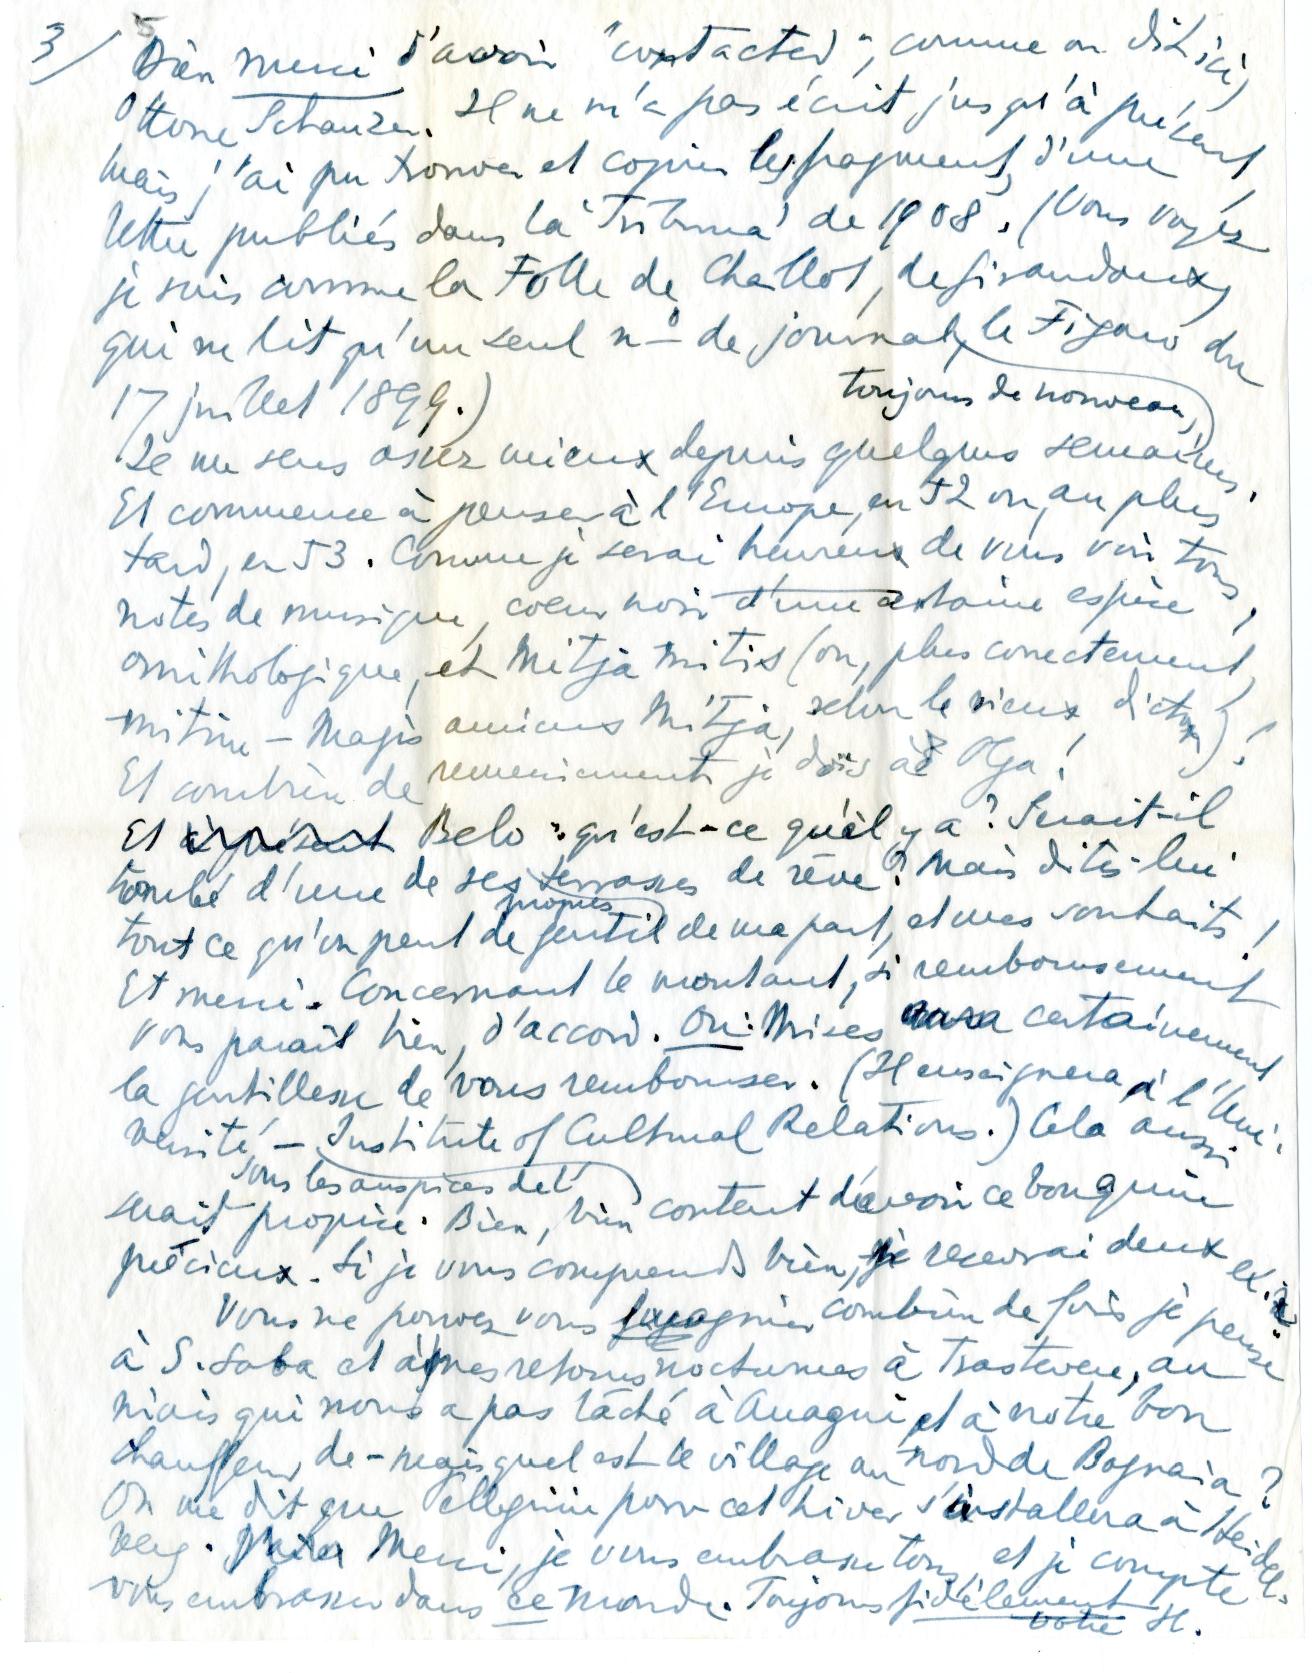 3/ Bien merci d'avoir "contacted", comme on dit ici,
Ottone Schanzer. Il ne m'a pas écrit jusqu'à présent,
mais j'ai pu trouver et copier les fragments d'une
lettre publiés dans la 'Tribuna' de 1908. (Vous voyez
je suis comme la Folle de Chaillot, de Giraudoux,
qui ne lit qu'un seul no de journal, le Figaro du
17 juillet 1899.)
toujours de nouveau,
Je me sens assez mieux depuis quelques semaines.
Et commence à penser à l'Europe, en 52 ou, au plus
tard, en 53. Comme je serai heureux de vous voir tous,
notes de musique, coeur noir d'une certaine espèce
ornithologique, et Mitja mitis (ou, plus correctement,
mitior – Magis amicus Mitja, selon le vieux dicton)!
Et combien de remerciments je dois à Olga!
Et Belo : qu'est-ce qu'il y a? Serait-il
tombé d'une de ses terrasses de rêve? Mais dites-lui
propres
tout ce qu'on peut de gentil de ma part, et mes souhaits!
Et merci. Concernant le montant, si remboursement
vous parait bien, d'accord. Ou: Mises aura certainement
la gentillesse de vous rembourser. (Il enseignera à l'Uni-
versité – Institute of Cultural Relations.) Cela aussi
sous les auspices del'
serait propice. Bien, bien content d'avoir ce bouquin
précieux. Si je vous comprends bien, je recevrai deux ex.
Vous ne pouvez vous imaginer combien de fois je pense
à S. Saba et à mes retours nocturnes à Trastevere, au
niais qui nous a pas lâché à Anagni et à notre bon
chauffeur, de – mais quel est le village au nord de Bagnaia?
On me dit que Pellegrini pour cet hiver s'installera à Heidel-
berg. Merci, je vous embrasse tous, et je compte
vous embrasser dans ce monde. Toujours fidèlement
votre H.